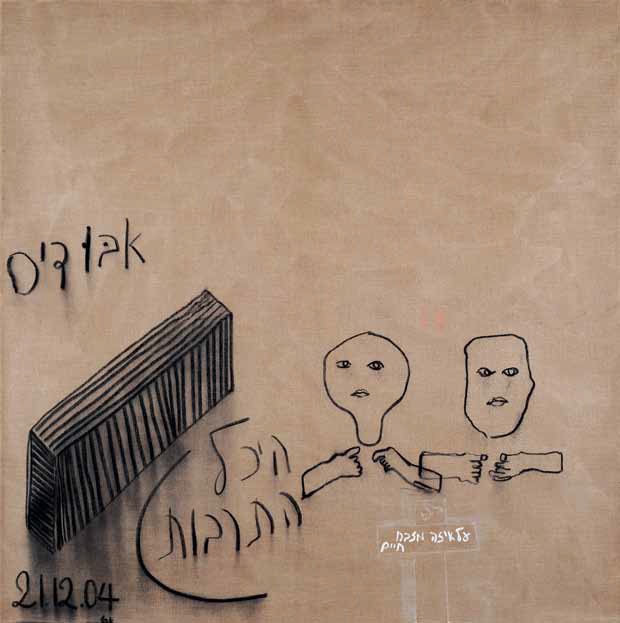 אבו דיס
היכל
התרבות
על איזה מזבח
חיים
21.12.04